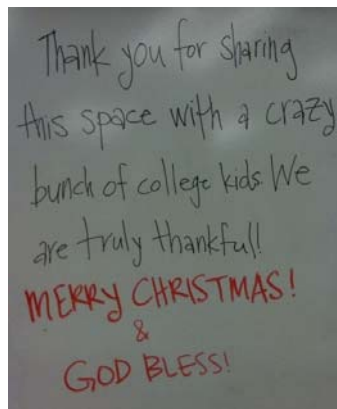 Thank you for sharing
this space with a crazy
bunch of college kids. We
are truly thankful!
MERRY CHRISTMAS!
&
GOD BLESS!